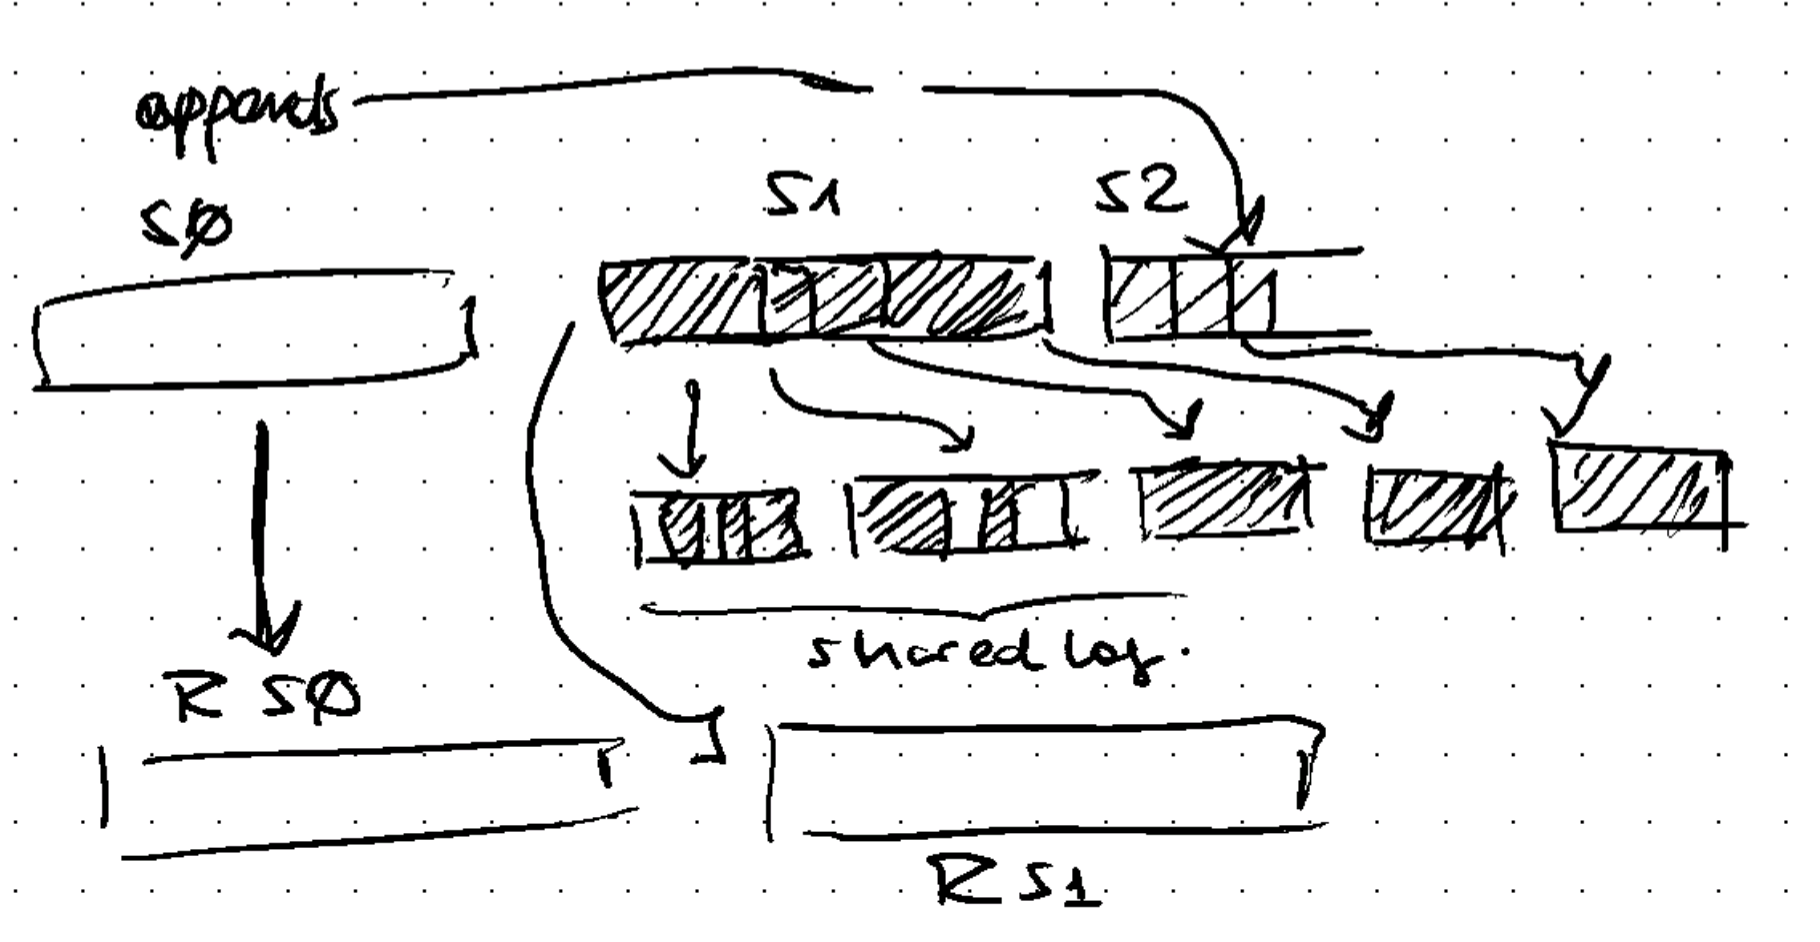 appends
S1 S2
SØ
shared log.
R SØ
R S1